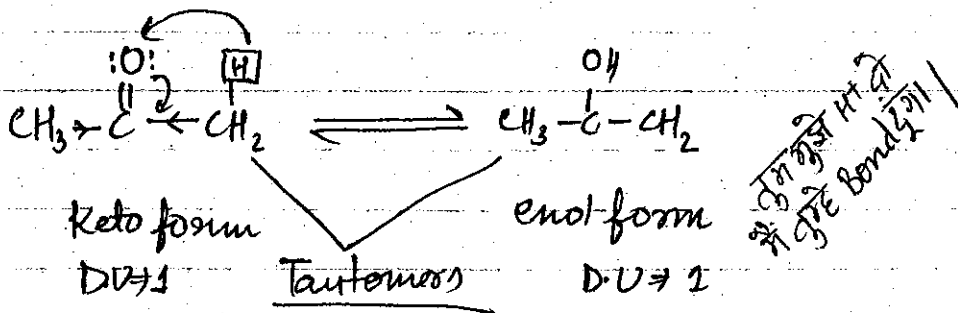 :O: H OH
CH₃ → C ← CH₂ ⇌ CH₃ – C – CH₂
Keto form enol form
D.U ⇒ 1 Tautomers D.U ⇒ 1
तुम मुझे H⁺ दो
मैं तुम्हे Bond दूंगा।